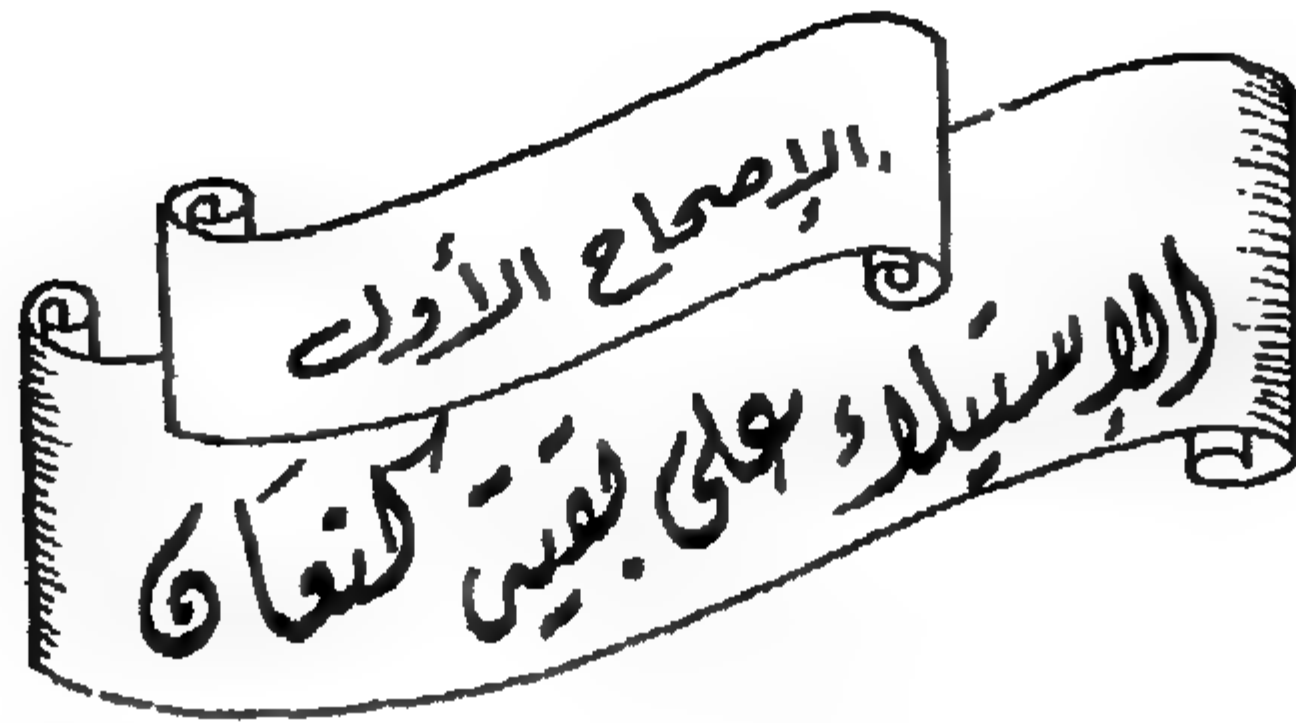 الإصحاح الأول
الإستيلاء على بقية كنعَان